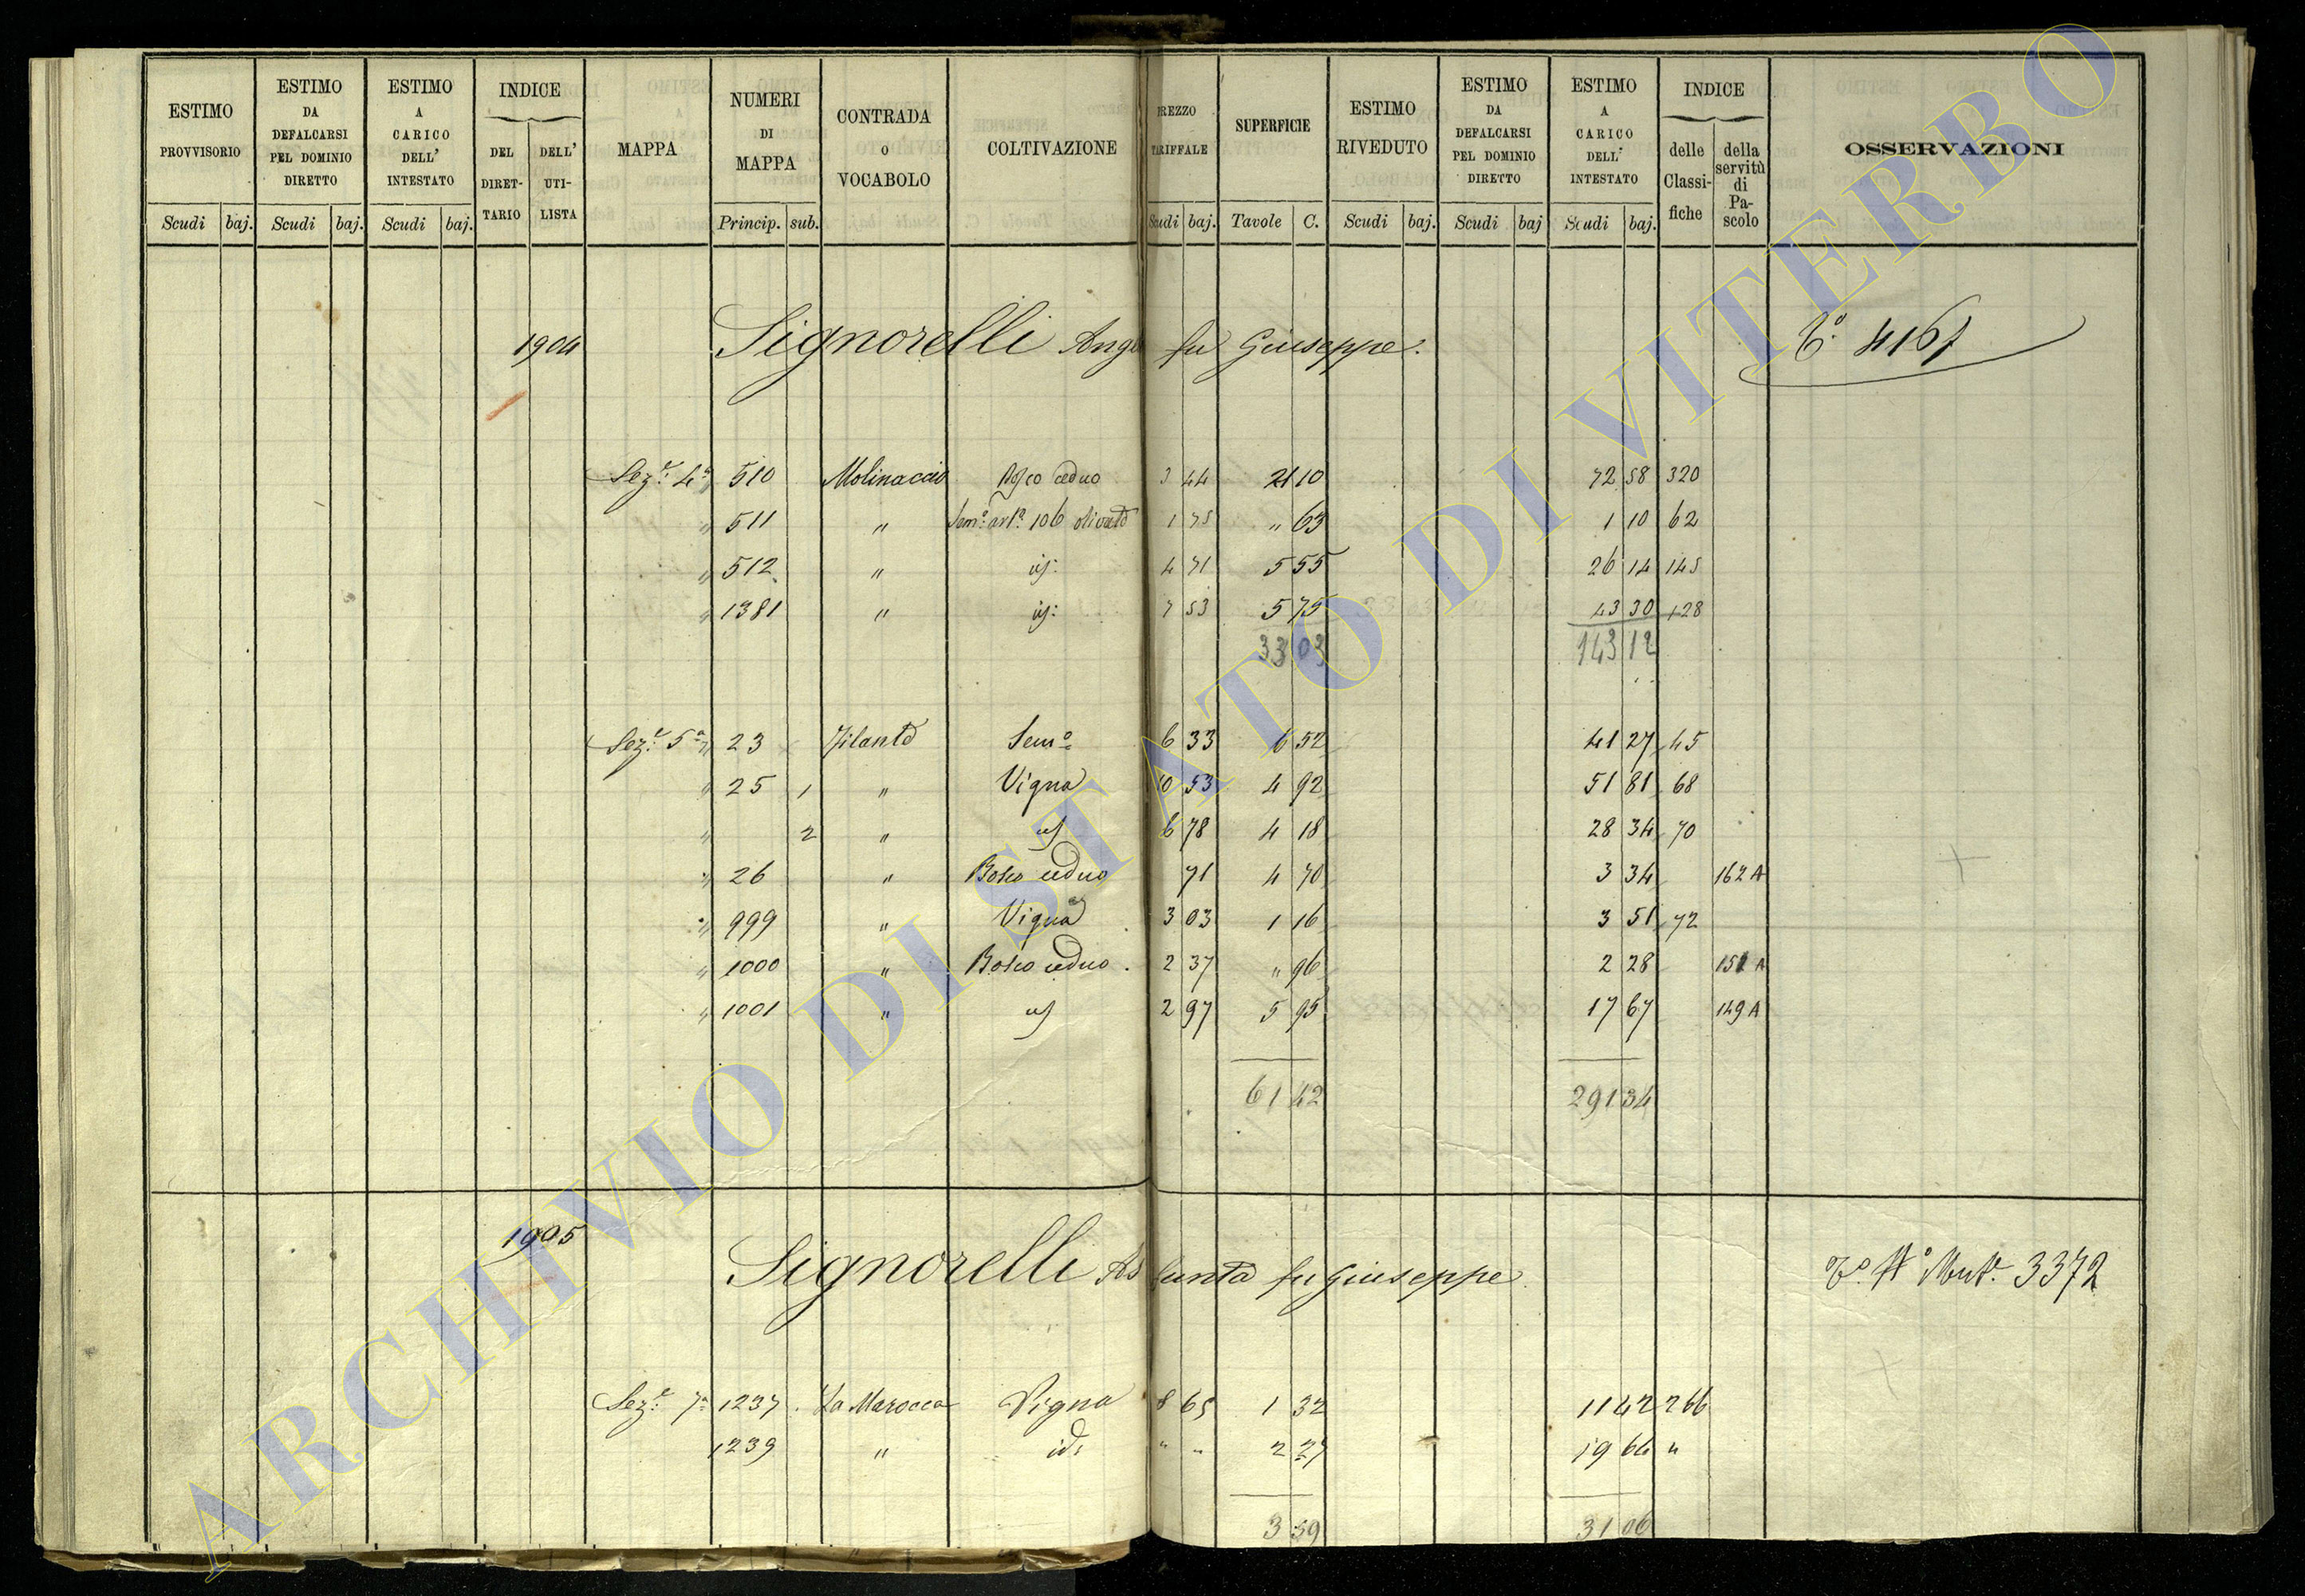 ESTIMO PROVVISORIO
Scudi baj.
ESTIMO DA DEFALCARSI PEL DOMINIO DIRETTO
Scudi baj.
ESTIMO A CARICO DELL' INTESTATO
Scudi baj.
INDICE
DEL DIRET- TARIO
DELL' UTI- LISTA
MAPPA
NUMERI DI MAPPA
Princip. sub.
CONTRADA O VOCABOLO
COLTIVAZIONE
PREZZO TARIFFALE
Scudi baj.
SUPERFICIE
Tavole C.
ESTIMO RIVEDUTO
Scudi baj.
ESTIMO DA DEFALCARSI PEL DOMINIO DIRETTO
Scudi baj
ESTIMO A CARICO DELL' INTESTATO
Scudi baj.
INDICE
delle Classi- fiche
della servitù di Pa- scolo
OSSERVAZIONI
1904 Signorelli Ang fu Giuseppe. 4161
Sez.e 4a 510 Molinaccio Bosco ceduo 3 44 21 10 72 58 320
" 511 " Sem.o art.o 106 olivato 1 75 " 63 1 10 62
" 512 " id: 4 71 5 55 26 14 145
" 1381 " id: 7 53 5 75 43 30 128
33 03 143 12
Sez.e 5a " 23 Filanto Sem.o 6 33 6 52 41 27 45
" 25 1 " Vigna 10 53 4 92 51 81 68
" 2 " id 6 78 4 18 28 34 70
" 26 " Bosco ceduo 71 4 70 3 34 162 A
" 999 " Vigna 3 03 1 16 3 51 72
" 1000 " Bosco ceduo 2 37 " 96 2 28 151 A
" 1001 " id 2 97 5 95 17 67 149 A
61 42 291 34
1905 Signorelli Assunta fu Giuseppe V.o N.o Mut.e 3372
Sez.e 7a 1237 La Marocca Vigna 8 65 1 32 11 42 266
1239 " id: " " 2 27 19 64 "
3 59 31 06
ARCHIVIO DI STATO DI VITERBO